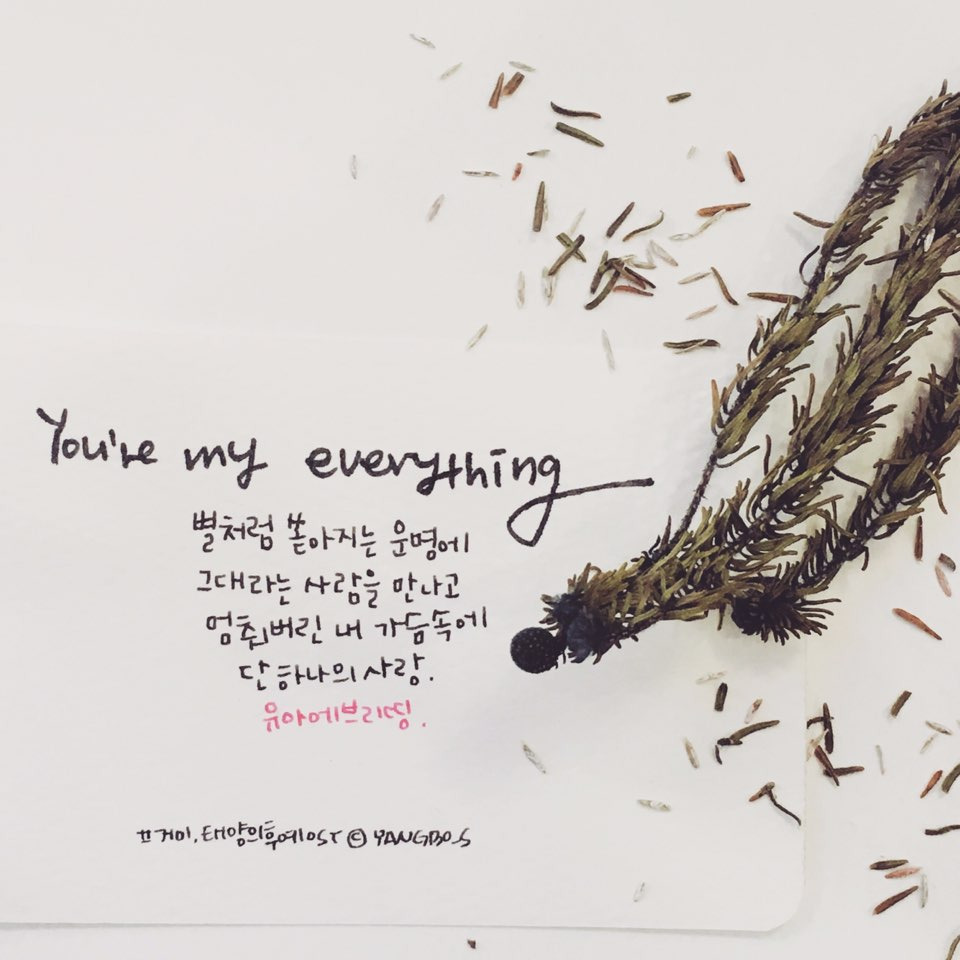 You're my everything
별처럼 쏟아지는 운명에
그대라는 사람을 만나고
멈춰버린 내 가슴속에
단 하나의 사랑.
유아에브리띵.
ㅍ거미. 태양의후예OST © YANGBO_S